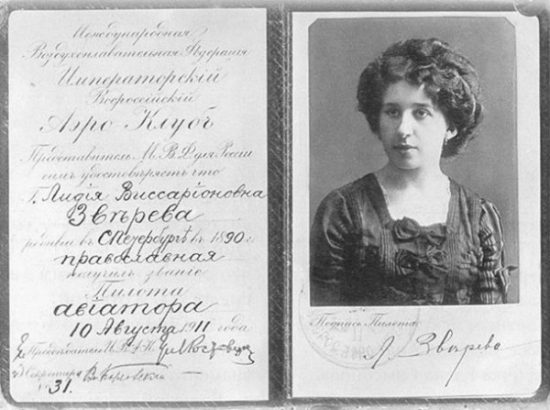 Международная
Воздухоплавательная Федерація
Императорскій
Всероссійскій
Аэро Клубъ
Представитель М. В. Ф. для Россіи
симъ удостовѣряетъ что
Г. Лидія Виссаріоновна
Звѣрева
родился въ С Петербургѣ въ 1890 г.
православная
получилъ званіе
Пилота
авіатора
10 Августа 1911 года
Предсѣдатель И. В. А. К.
Секретарь
№ 31.
Подпись Пилота
Л. Звѣрева